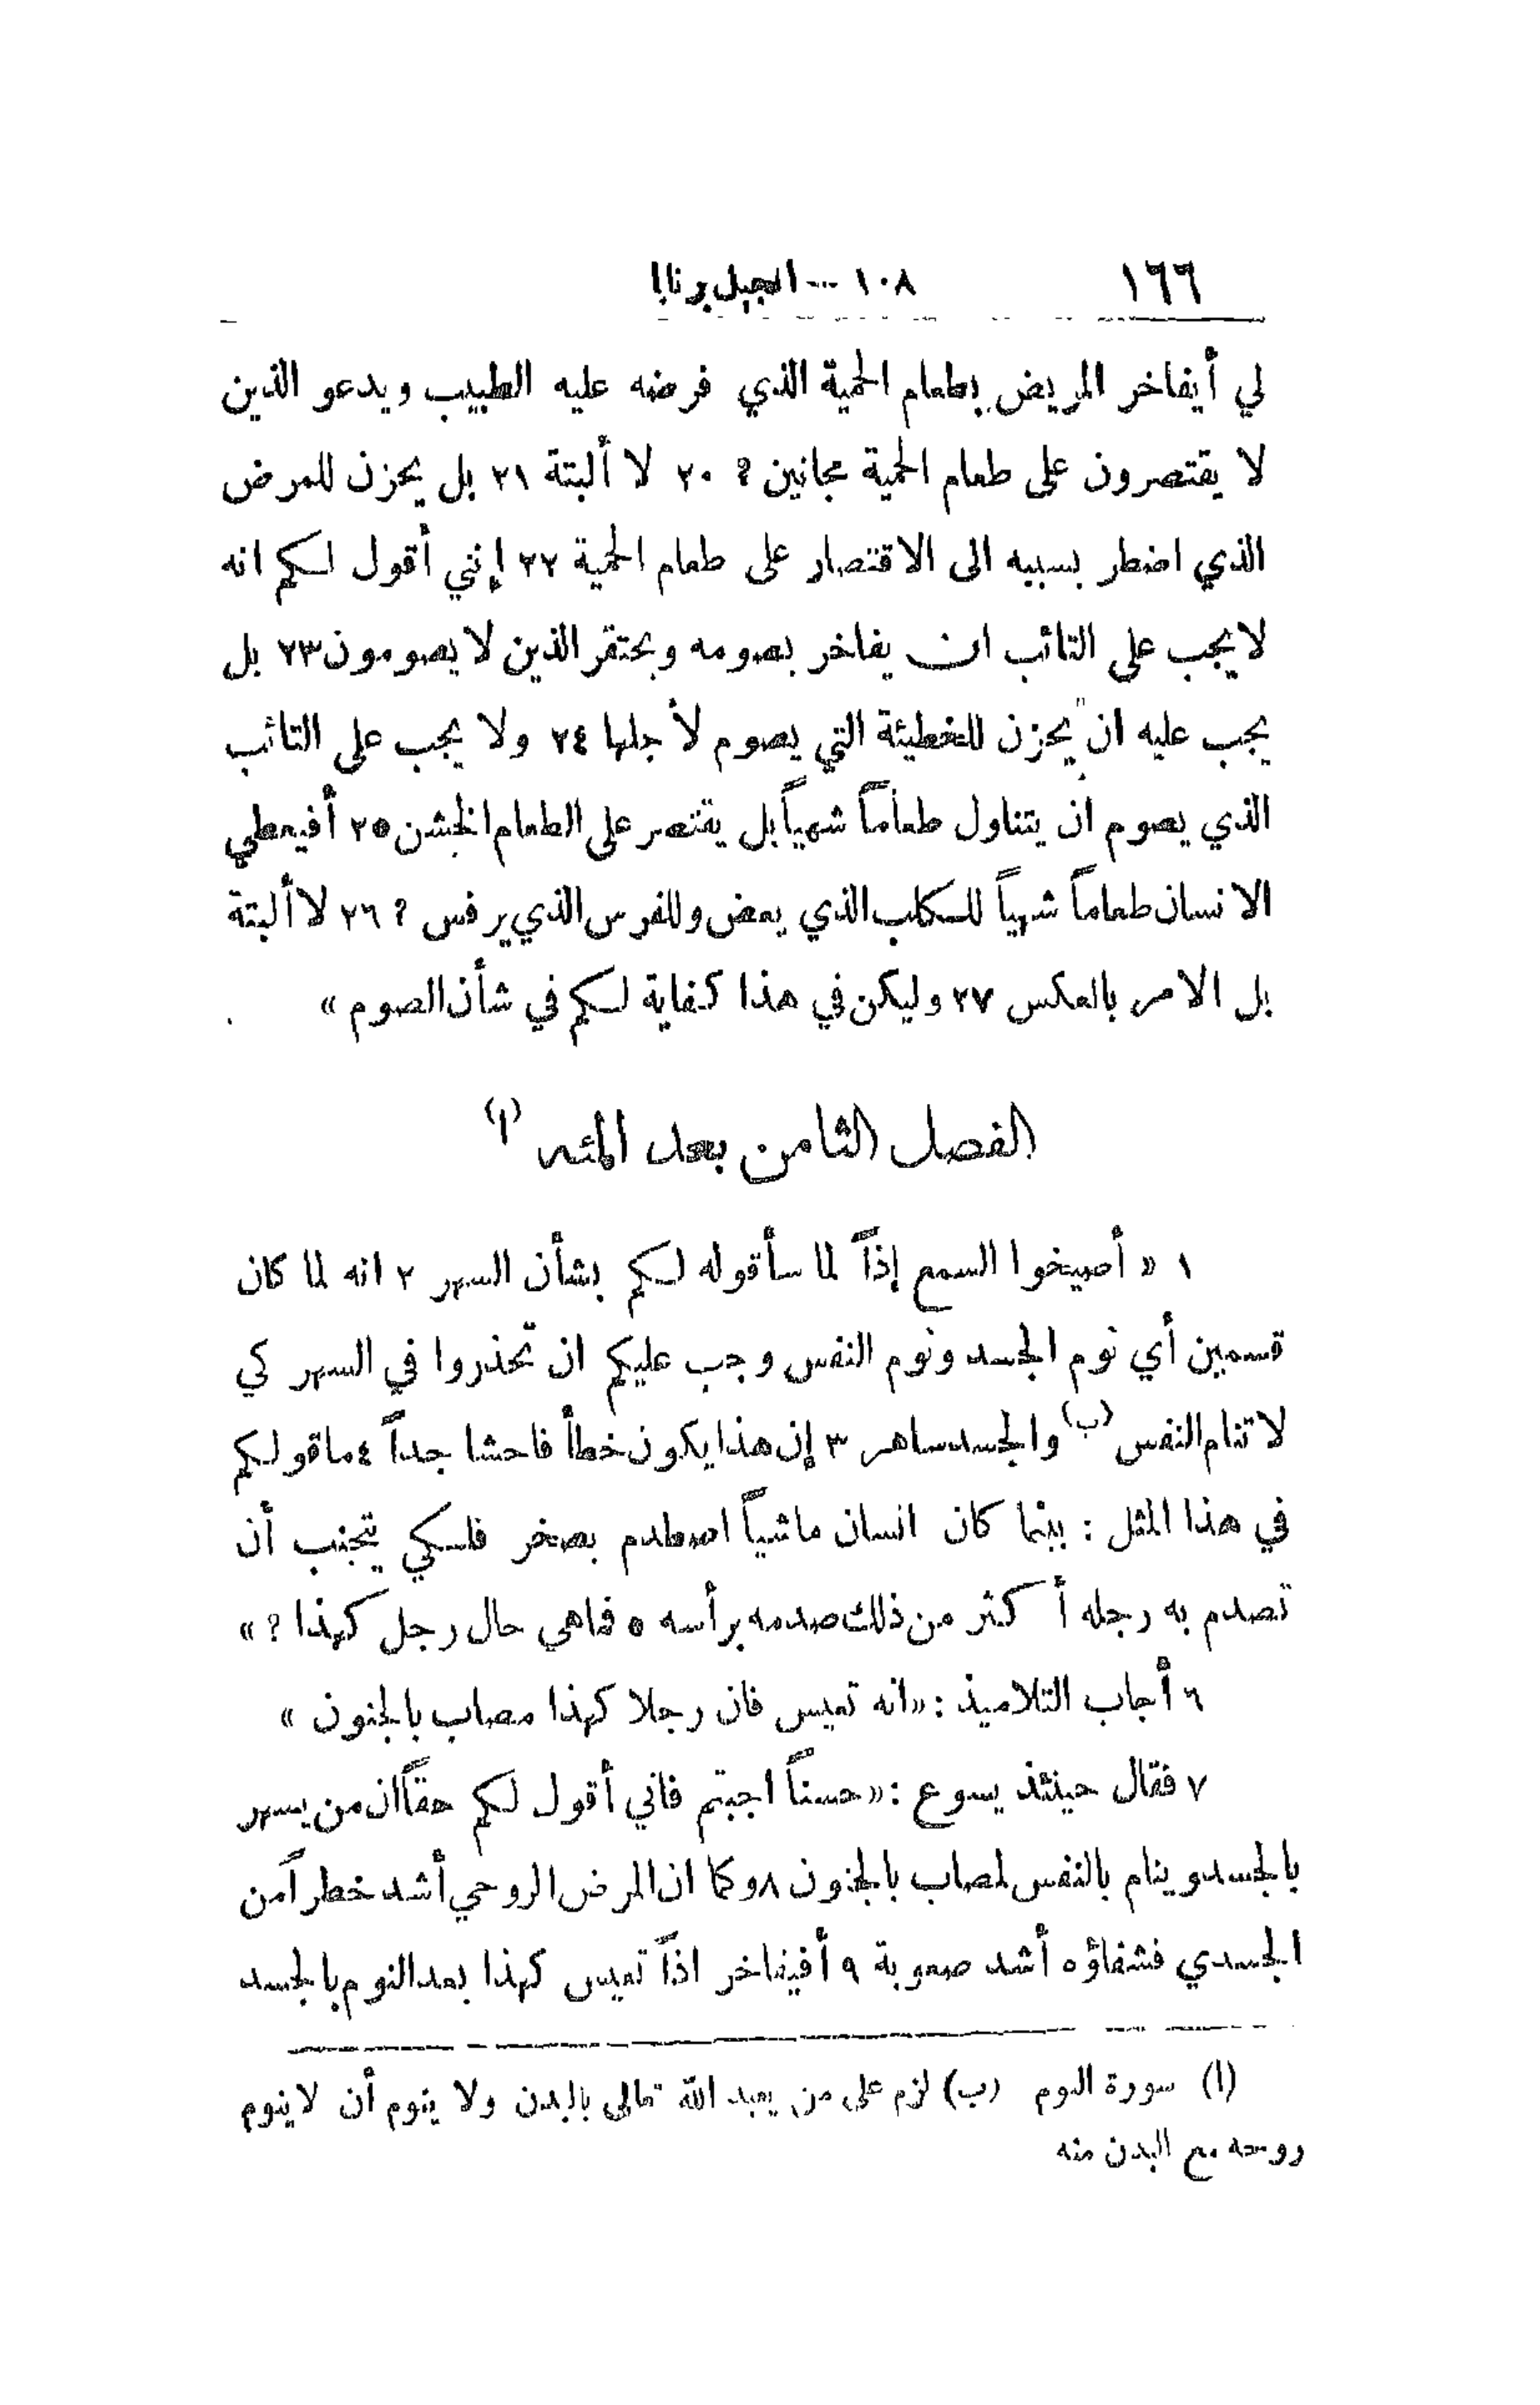 ١٦٦ ١٠٨ — انجيل برنابا
لي أيفاخر المريض بطعام الحمية الذي فرضه عليه الطبيب ويدعو الذين
لا يقتصرون على طعام الحمية مجانين ؟ ٢٠ لا ألبتة ٢١ بل يحزن للمرض
الذي اضطر بسببه الى الاقتصار على طعام الحمية ٢٢ إنني أقول لكم انه
لا يجب على التائب ان يفاخر بصومه ويحتقر الذين لا يصومون ٢٣ بل
يجب عليه ان يحزن للخطيئة التي يصوم لأجلها ٢٤ ولا يجب على التائب
الذي يصوم ان يتناول طعاماً شهياً بل يقتصر على الطعام الخشن ٢٥ أفيعطي
الانسان طعاماً شهياً للكلب الذي يعض وللفرس الذي يرفس ؟ ٢٦ لا ألبتة
بل الامر بالعكس ٢٧ وليكن في هذا كفاية لكم في شأن الصوم »
الفصل الثامن بعد المئه (ا)
١ « أصيخوا السمع إذاً لما سأقوله لكم بشأن السهر ٢ انه لما كان
قسمين أي نوم الجسد ونوم النفس وجب عليكم ان تحذروا في السهر كي
لا تنام النفس (ب) والجسد ساهر ٣ إن هذا يكون خطأ فاحشا جداً ٤ ما قولكم
في هذا المثل : بينما كان انسان ماشياً اصطدم بصخر فلكي يتجنب أن
تصدم به رجله أكثر من ذلك صدمه برأسه ٥ فما هي حال رجل كهذا ؟ »
٦ أجاب التلاميذ : « انه تعيس فان رجلا كهذا مصاب بالجنون »
٧ فقال حينئذ يسوع : « حسناً اجبتم فاني أقول لكم حقاً ان من يسهر
بالجسد وينام بالنفس لمصاب بالجنون ٨ وكما ان المرض الروحي أشد خطراً من
الجسدي فشفاؤه أشد صعوبة ٩ أفيفاخر اذاً تعيس كهذا بعد النوم بالجسد
(ا) سورة النوم (ب) لزم على من يعبد الله تعالى بالبدن ولا ينوم أن لا ينوم
روحه مع البدن منه